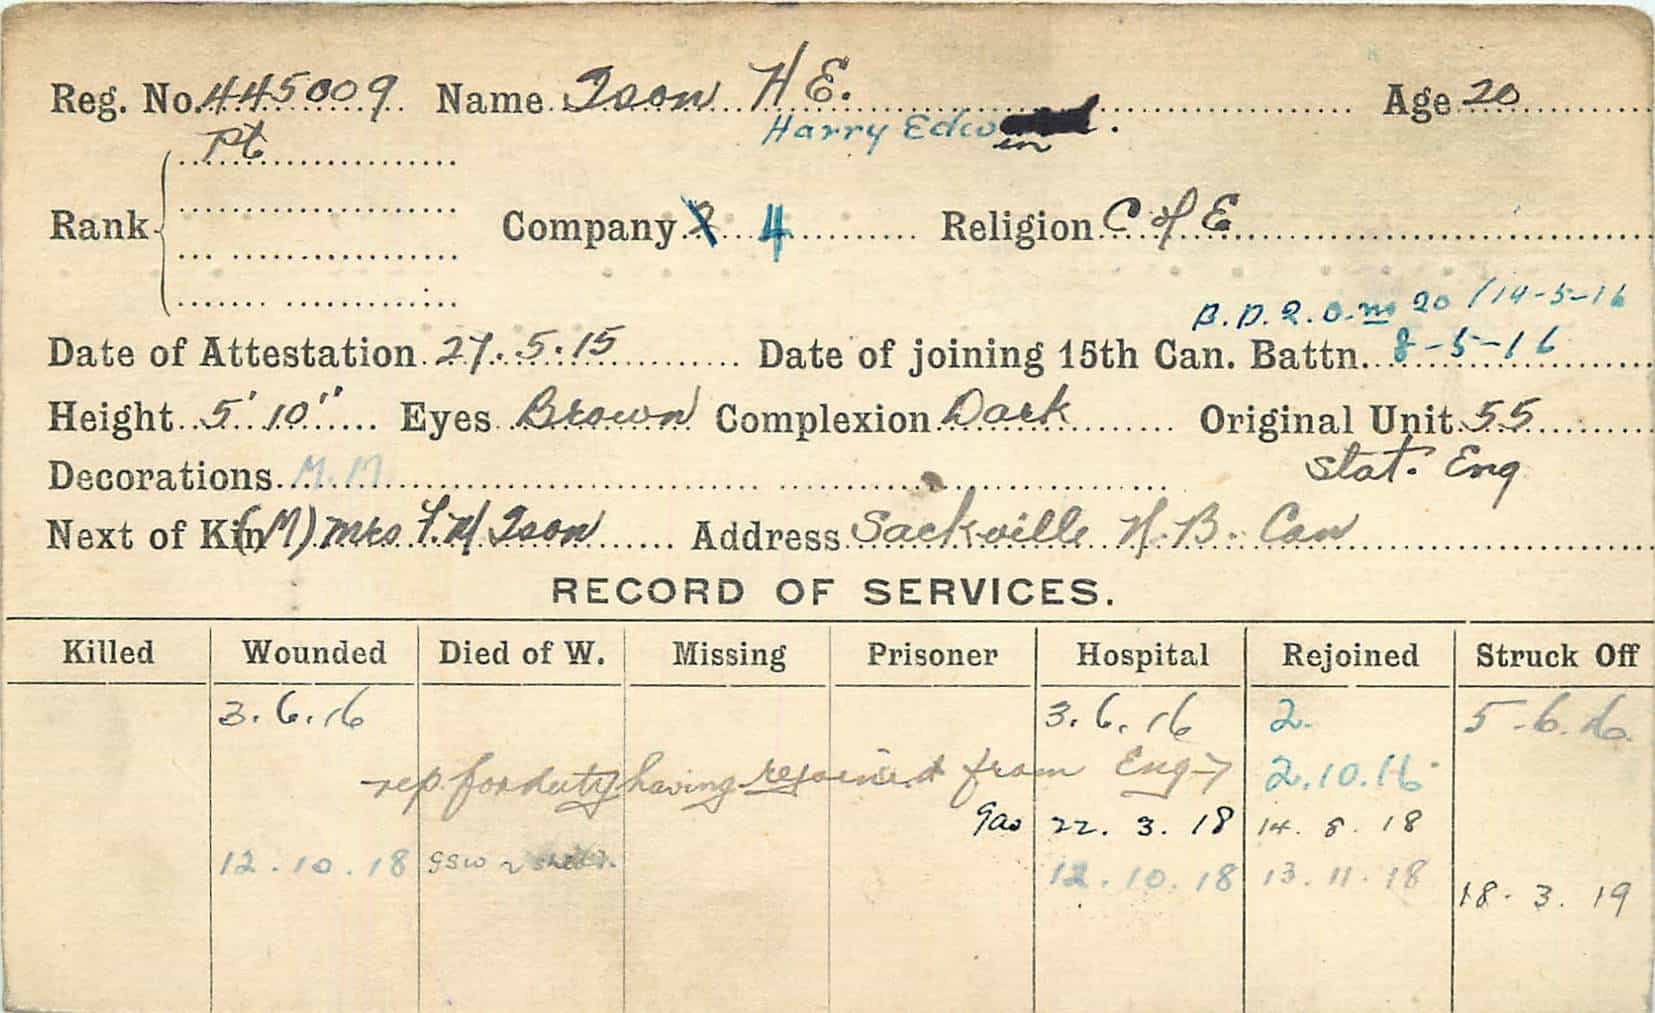 Reg. No. 445009 Name Ison H E. Age 20
Harry Edwin
Pt
Rank Company 4 Religion C of E
B.D.R.O. 20 / 14-5-16
Date of Attestation 27.5.15 Date of joining 15th Can. Battn. 8-5-16
Height 5' 10" Eyes Brown Complexion Dark Original Unit 55
Decorations M.M Stat. Eng
Next of Kin (M) Mrs F. M Ison Address Sackville N.B. Can
RECORD OF SERVICES.
Killed Wounded Died of W. Missing Prisoner Hospital Rejoined Struck Off
3.6.16 3.6.16 2. 5.6.16.
rep for duty having rejoined from Eng 2.10.16
Gas 22. 3. 18 14. 8. 18
12.10.18 GSW 12.10.18 13.11.18
18. 3. 19